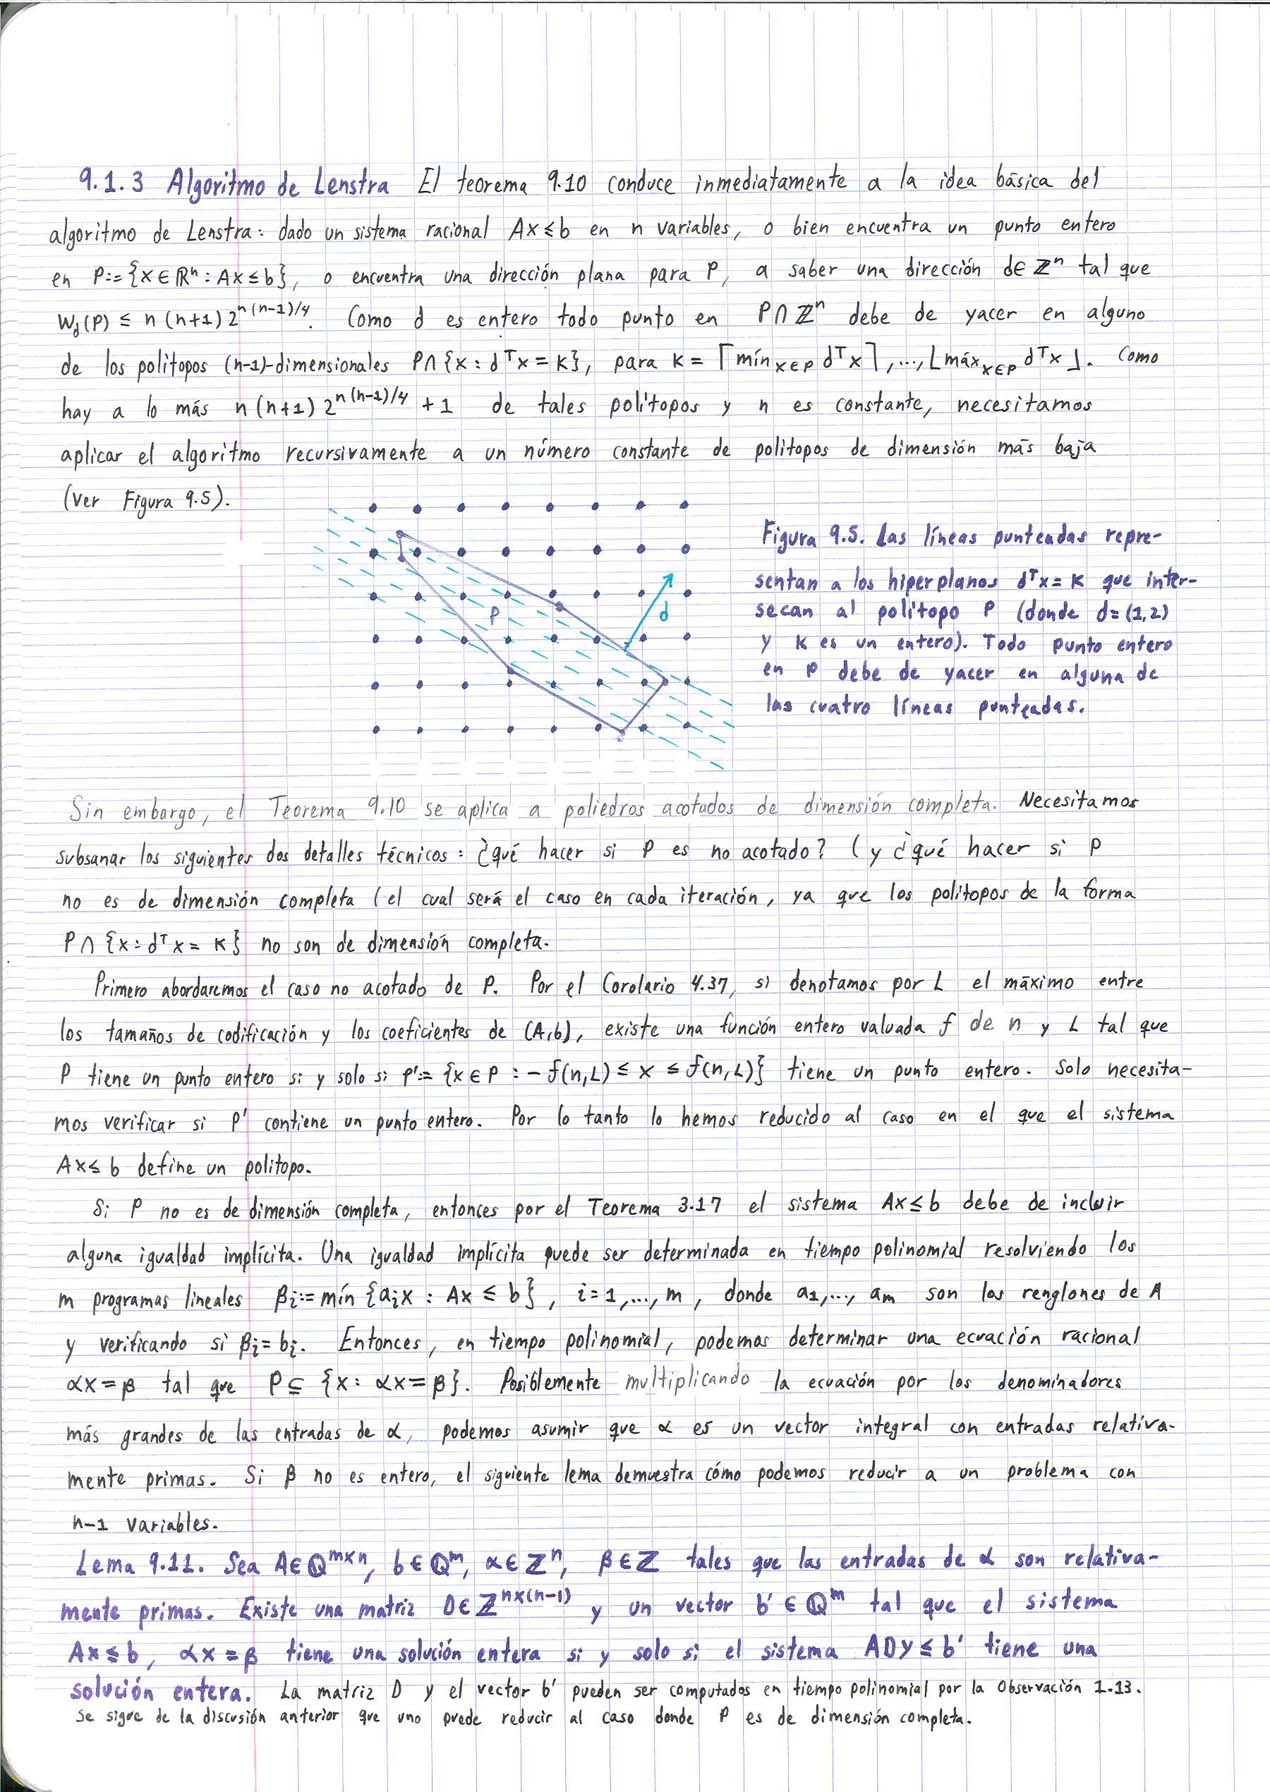 9.1.3 Algoritmo de Lenstra El teorema 9.10 conduce inmediatamente a la idea básica del
algoritmo de Lenstra: dado un sistema racional Ax≤b en n variables, o bien encuentra un punto entero
en P:={x∈ℝⁿ: Ax≤b}, o encuentra una dirección plana para P, a saber una dirección d∈ℤⁿ tal que
W_d(P) ≤ n(n+1)2^{n(n-1)/4}. Como d es entero todo punto en P∩ℤⁿ debe de yacer en alguno
de los politopos (n-1)-dimensionales P∩{x: dᵀx=K}, para K=⌈mín_{x∈P} dᵀx⌉,...,⌊máx_{x∈P} dᵀx⌋. Como
hay a lo más n(n+1)2^{n(n-1)/4}+1 de tales politopos y n es constante, necesitamos
aplicar el algoritmo recursivamente a un número constante de politopos de dimensión más baja
(Ver Figura 9.5).
P
d
Figura 9.5. Las líneas punteadas repre-
sentan a los hiperplanos dᵀx=K que inter-
secan al politopo P (donde d=(1,2)
y K es un entero). Todo punto entero
en P debe de yacer en alguna de
las cuatro líneas punteadas.
Sin embargo, el Teorema 9.10 se aplica a poliedros acotados de dimensión completa. Necesitamos
subsanar los siguientes dos detalles técnicos: ¿qué hacer si P es no acotado? (y ¿qué hacer si P
no es de dimensión completa (el cual será el caso en cada iteración, ya que los politopos de la forma
P∩{x: dᵀx=K} no son de dimensión completa.
Primero abordaremos el caso no acotado de P. Por el Corolario 4.37, si denotamos por L el máximo entre
los tamaños de codificación y los coeficientes de (A,b), existe una función entero valuada f de n y L tal que
P tiene un punto entero si y solo si P':={x∈P : -f(n,L)≤x≤f(n,L)} tiene un punto entero. Solo necesita-
mos verificar si P' contiene un punto entero. Por lo tanto lo hemos reducido al caso en el que el sistema
Ax≤b define un politopo.
Si P no es de dimensión completa, entonces por el Teorema 3.17 el sistema Ax≤b debe de incluir
alguna igualdad implícita. Una igualdad implícita puede ser determinada en tiempo polinomial resolviendo los
m programas lineales βᵢ:=mín{aᵢx : Ax≤b}, i=1,...,m, donde a₁,..., aₘ son los renglones de A
y verificando si βᵢ=bᵢ. Entonces, en tiempo polinomial, podemos determinar una ecuación racional
αx=β tal que P⊆{x: αx=β}. Posiblemente multiplicando la ecuación por los denominadores
más grandes de las entradas de α, podemos asumir que α es un vector integral con entradas relativa-
mente primas. Si β no es entero, el siguiente lema demuestra cómo podemos reducir a un problema con
n-1 variables.
Lema 9.11. Sea A∈ℚ^{m×n}, b∈ℚᵐ, α∈ℤⁿ, β∈ℤ tales que las entradas de α son relativa-
mente primas. Existe una matriz D∈ℤ^{n×(n-1)} y un vector b'∈ℚᵐ tal que el sistema
Ax≤b, αx=β tiene una solución entera si y solo si el sistema ADy≤b' tiene una
solución entera. La matriz D y el vector b' pueden ser computados en tiempo polinomial por la Observación 1.13.
Se sigue de la discusión anterior que uno puede reducir al caso donde P es de dimensión completa.